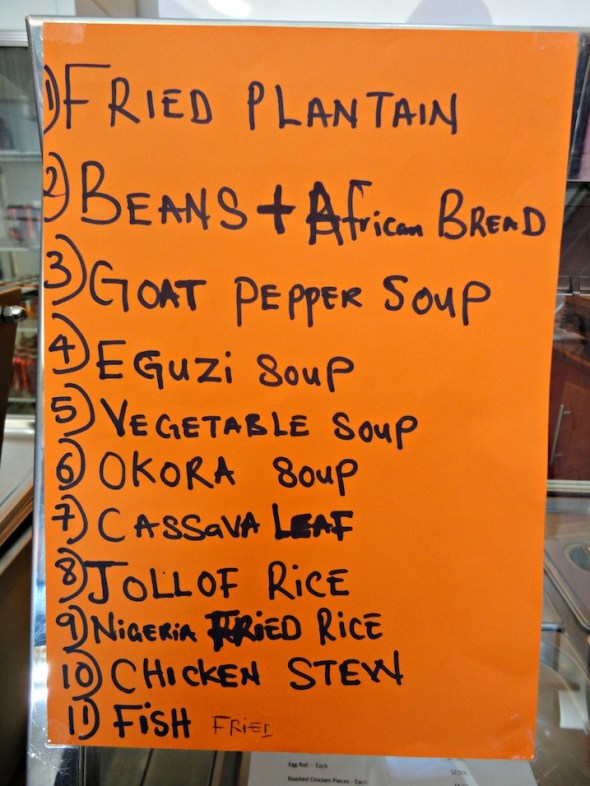 1) FRIED PLANTAIN
2) BEANS + African BREAD
3) GOAT PEPPER SOUP
4) EGUZI SOUP
5) VEGETABLE SOUP
6) OKORA SOUP
7) CASSAVA LEAF
8) JOLLOF RICE
9) NIGERIA FRIED RICE
10) CHICKEN STEW
11) FISH FRIED
Egg Roll - Each
Roasted Chicken Pieces - Each